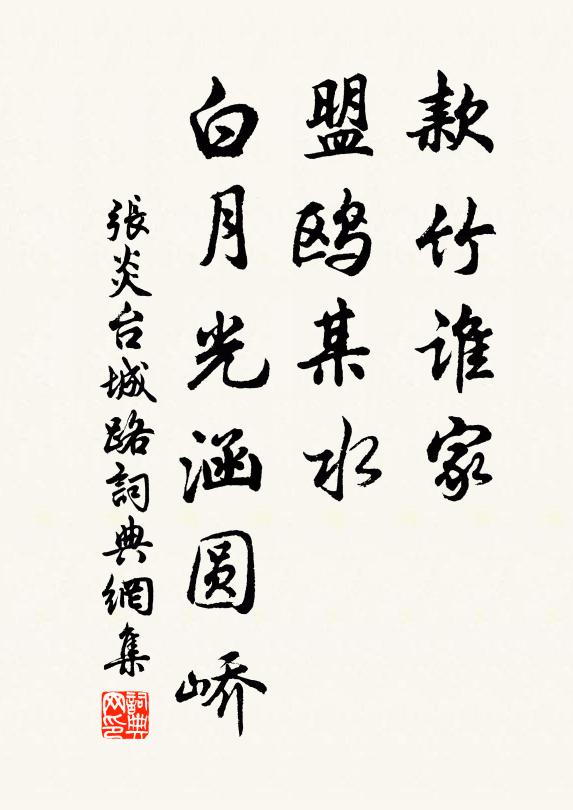 款竹谁家
盟鸥某水
白月光涵圆峤
張炎台城路詞典網集
詞典网印